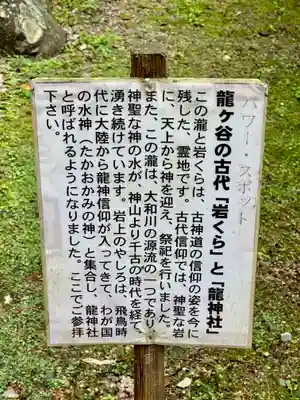 パワー・スポット
龍ヶ谷の古代「岩くら」と「龍神社」
この瀧と岩くらは、古神道の信仰の姿を今に
残した、霊地です。古代信仰では、神聖な岩
に、天上から神を迎え、祭祀を行いました。
また、この瀧は、大和川の源流の一つであり、
神聖な神の水が、神山より千古の時代を経て、
湧き続けています。岩上のやしろは、飛鳥時
代に大陸から龍神信仰が入ってきて、わが国
の水神(たかおかみの神)と集合し、龍神社
と呼ばれるようになりました。ここでご参拝
下さい。